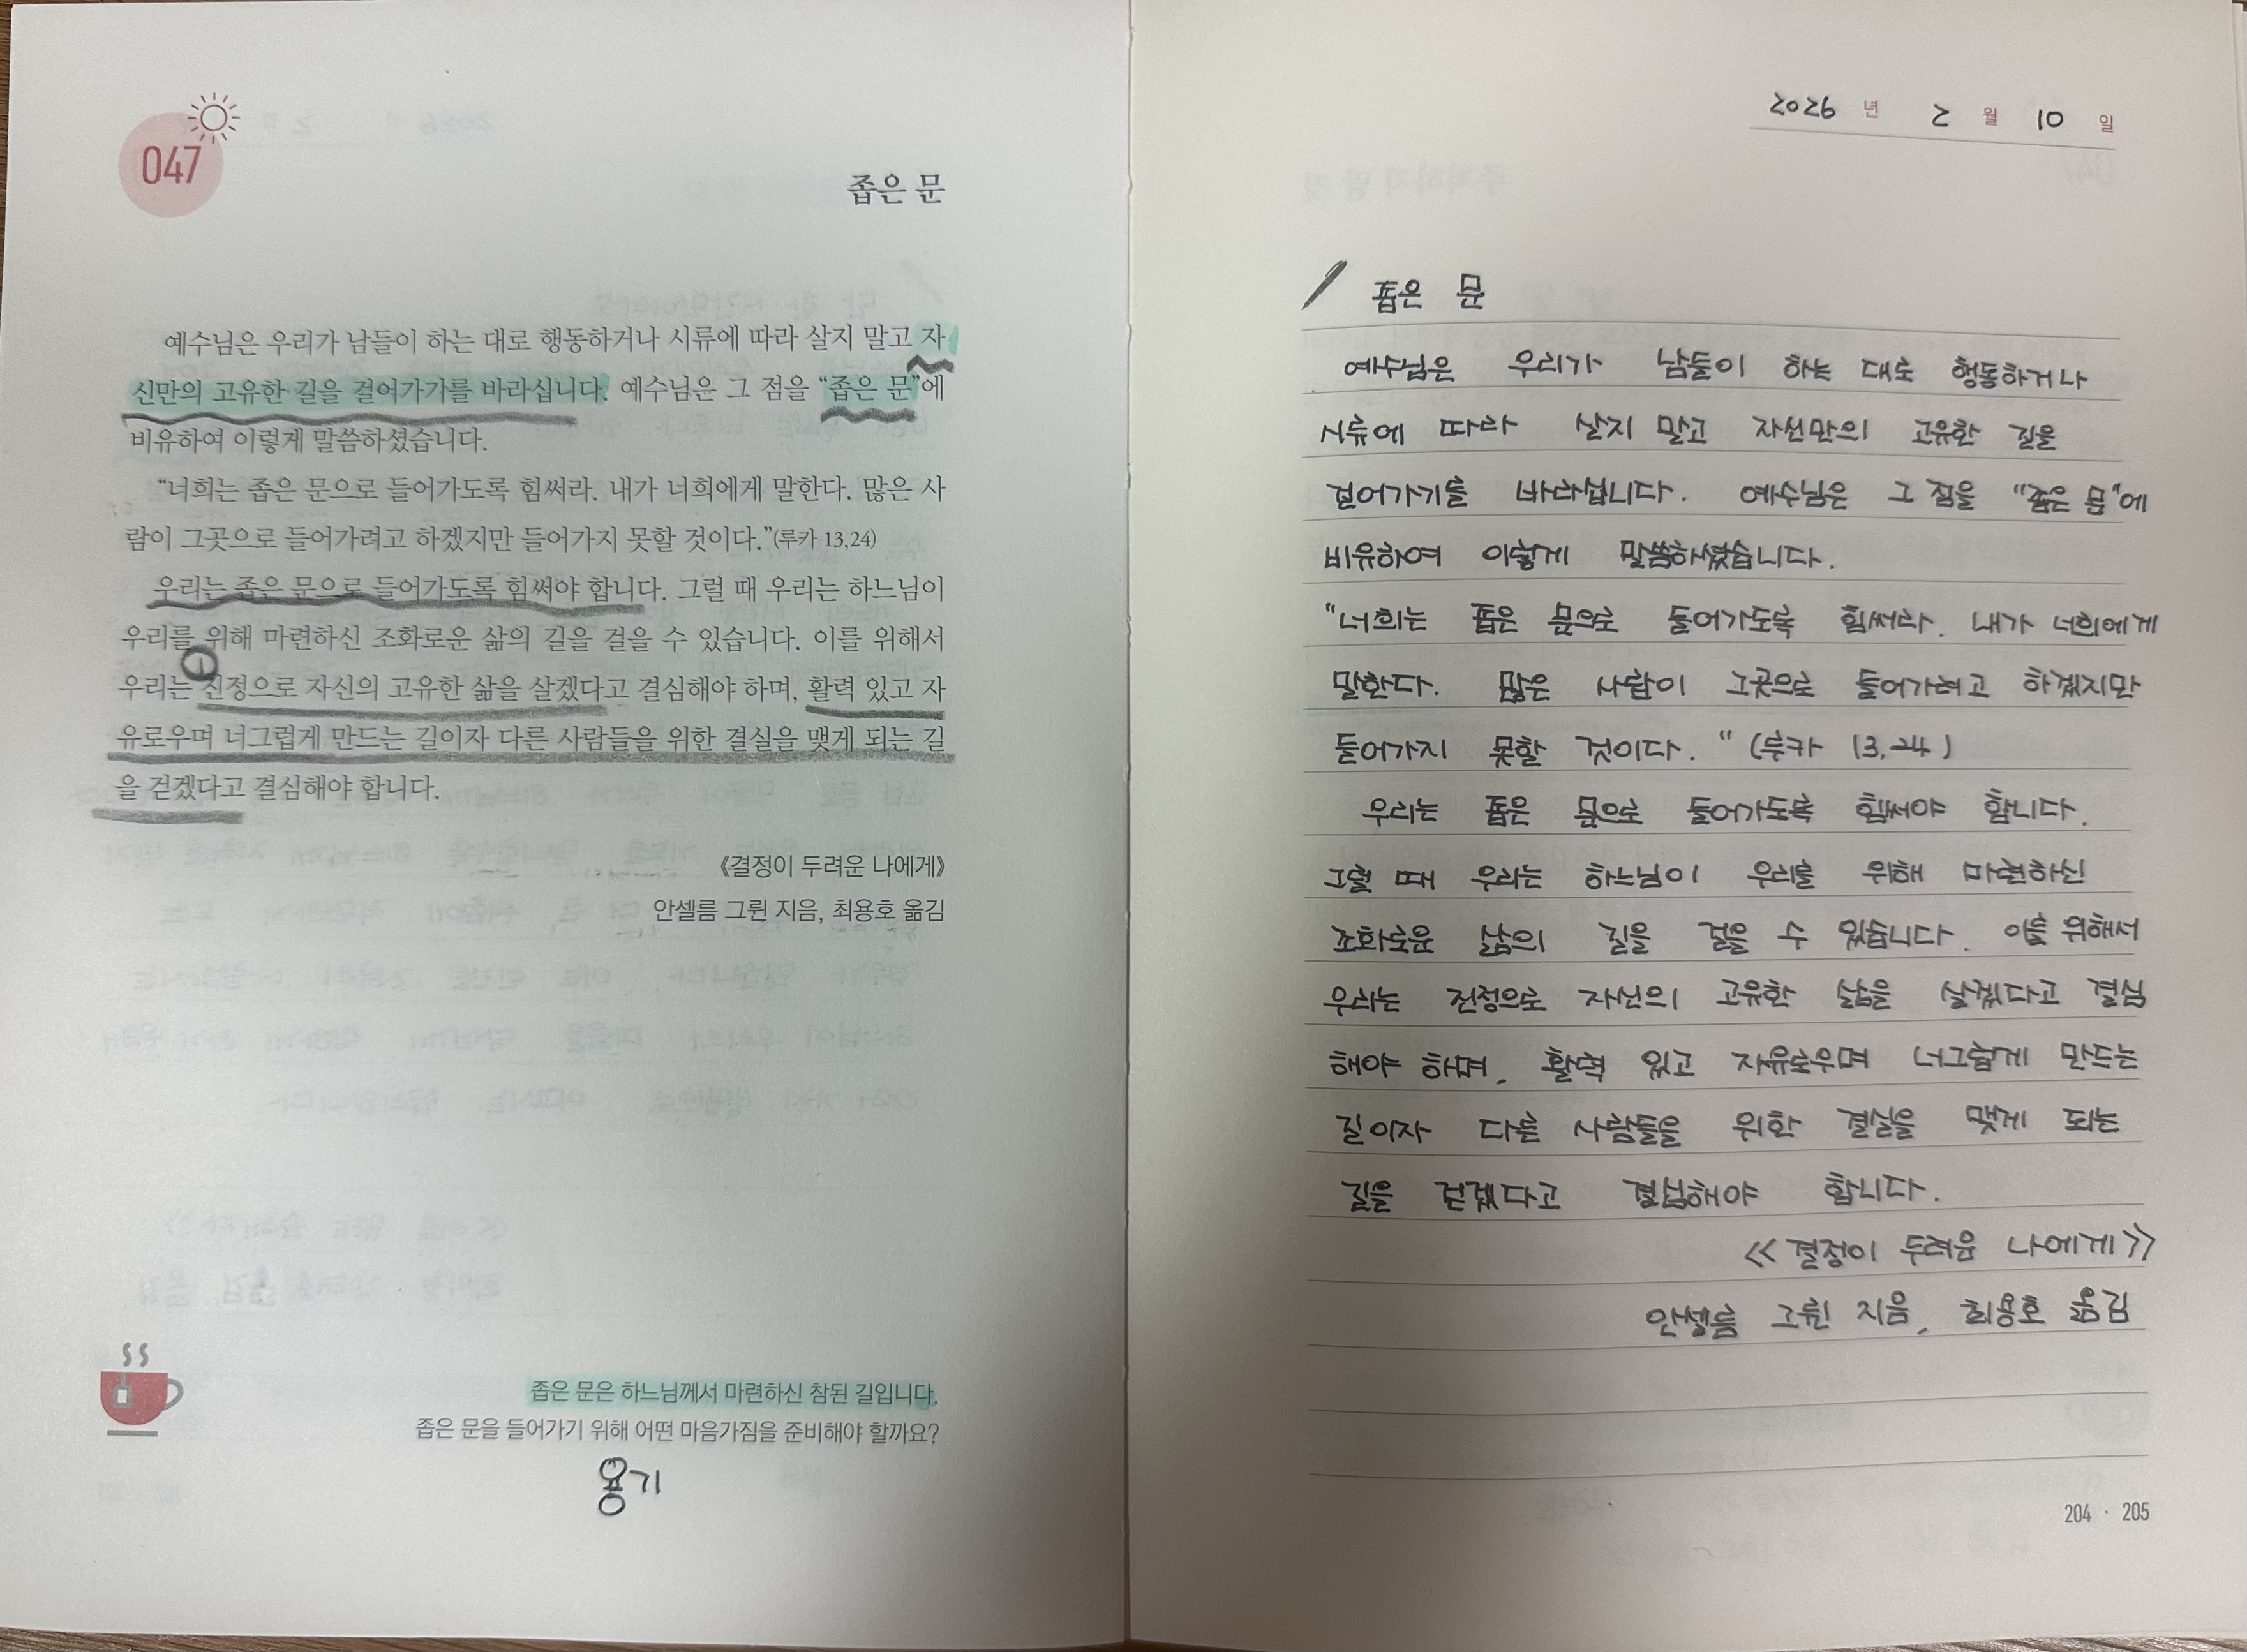 047
좁은 문
예수님은 우리가 남들이 하는 대로 행동하거나 시류에 따라 살지 말고 자
신만의 고유한 길을 걸어가기를 바라십니다. 예수님은 그 점을 “좁은 문”에
비유하여 이렇게 말씀하셨습니다.
“너희는 좁은 문으로 들어가도록 힘써라. 내가 너희에게 말한다. 많은 사
람이 그곳으로 들어가려고 하겠지만 들어가지 못할 것이다.”(루카 13,24)
우리는 좁은 문으로 들어가도록 힘써야 합니다. 그럴 때 우리는 하느님이
우리를 위해 마련하신 조화로운 삶의 길을 걸을 수 있습니다. 이를 위해서
우리는 진정으로 자신의 고유한 삶을 살겠다고 결심해야 하며, 활력 있고 자
유로우며 너그럽게 만드는 길이자 다른 사람들을 위한 결실을 맺게 되는 길
을 걷겠다고 결심해야 합니다.
《결정이 두려운 나에게》
안셀름 그륀 지음, 최용호 옮김
좁은 문은 하느님께서 마련하신 참된 길입니다.
좁은 문을 들어가기 위해 어떤 마음가짐을 준비해야 할까요?
용기
2026 년 2 월 10 일
좁은 문
예수님은 우리가 남들이 하는 대로 행동하거나
시류에 따라 살지 말고 자신만의 고유한 길을
걸어가기를 바라십니다. 예수님은 그 점을 "좁은 문"에
비유하여 이렇게 말씀하셨습니다.
"너희는 좁은 문으로 들어가도록 힘써라. 내가 너희에게
말한다. 많은 사람이 그곳으로 들어가려고 하겠지만
들어가지 못할 것이다." (루카 13,24)
우리는 좁은 문으로 들어가도록 힘써야 합니다.
그럴 때 우리는 하느님이 우리를 위해 마련하신
조화로운 삶의 길을 걸을 수 있습니다. 이를 위해서
우리는 진정으로 자신의 고유한 삶을 살겠다고 결심
해야 하며, 활력 있고 자유로우며 너그럽게 만드는
길이자 다른 사람들을 위한 결실을 맺게 되는
길을 걷겠다고 결심해야 합니다.
<<결정이 두려움 나에게>>
안셀름 그륀 지음, 최용호 옮김
204 · 205